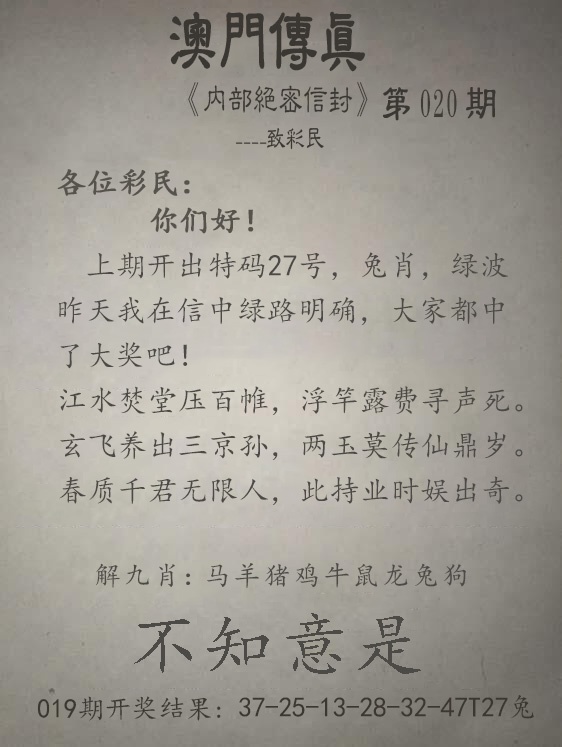 澳門傳真
《内部絕密信封》第020期
----致彩民
各位彩民：
你们好！
上期开出特码27号，兔肖，绿波
昨天我在信中绿路明确，大家都中
了大奖吧！
江水焚堂压百帷，浮竿露费寻声死。
玄飞养出三京孙，两玉莫传仙鼎岁。
春质千君无限人，此持业时娱出奇。
解九肖：马羊猪鸡牛鼠龙兔狗
不知意是
019期开奖结果：37-25-13-28-32-47T27兔